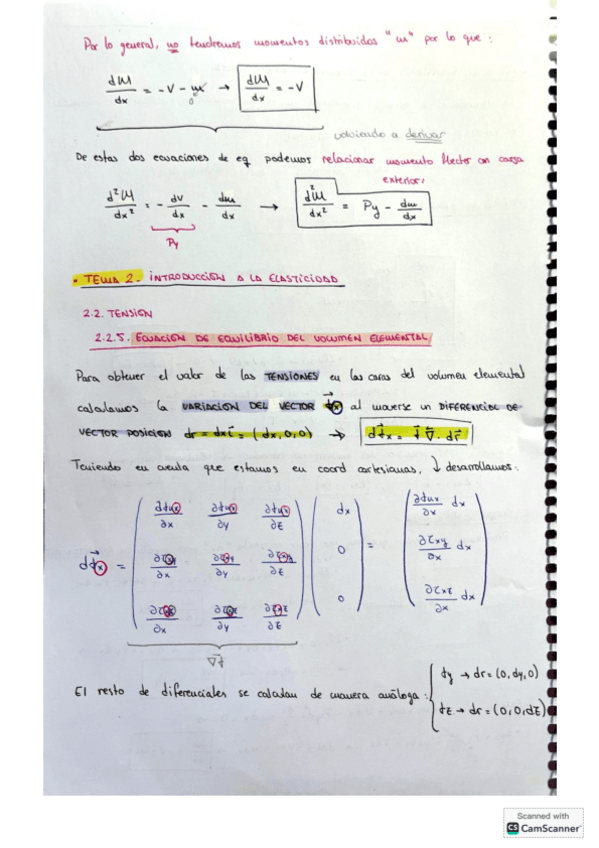 Por lo general, no tendremos momentos distribuidos "m" por lo que:
dM/dx = -V - m → dM/dx = -V
0
volviendo a derivar
De estas dos ecuaciones de eq. podemos relacionar momento flector con carga
exterior:
d²M/dx² = - dV/dx - dm/dx → d²M/dx² = Py - dm/dx
Py
• TEMA 2. INTRODUCCIÓN A LA ELASTICIDAD
2.2. TENSIÓN
2.2.5. ECUACIÓN DE EQUILIBRIO DEL VOLUMEN ELEMENTAL
Para obtener el valor de las TENSIONES en las caras del volumen elemental
calculamos la VARIACIÓN DEL VECTOR al moverse un DIFERENCIAL DE
VECTOR POSICIÓN dr = dx i = (dx, 0, 0) →
Teniendo en cuenta que estamos en coord cartesianas, ↓ desarrollamos:
dx
0
0
El resto de diferenciales se calculan de manera análoga: dy → dr = (0, dy, 0)
dz → dr = (0, 0, dz)
Scanned with
CS CamScanner